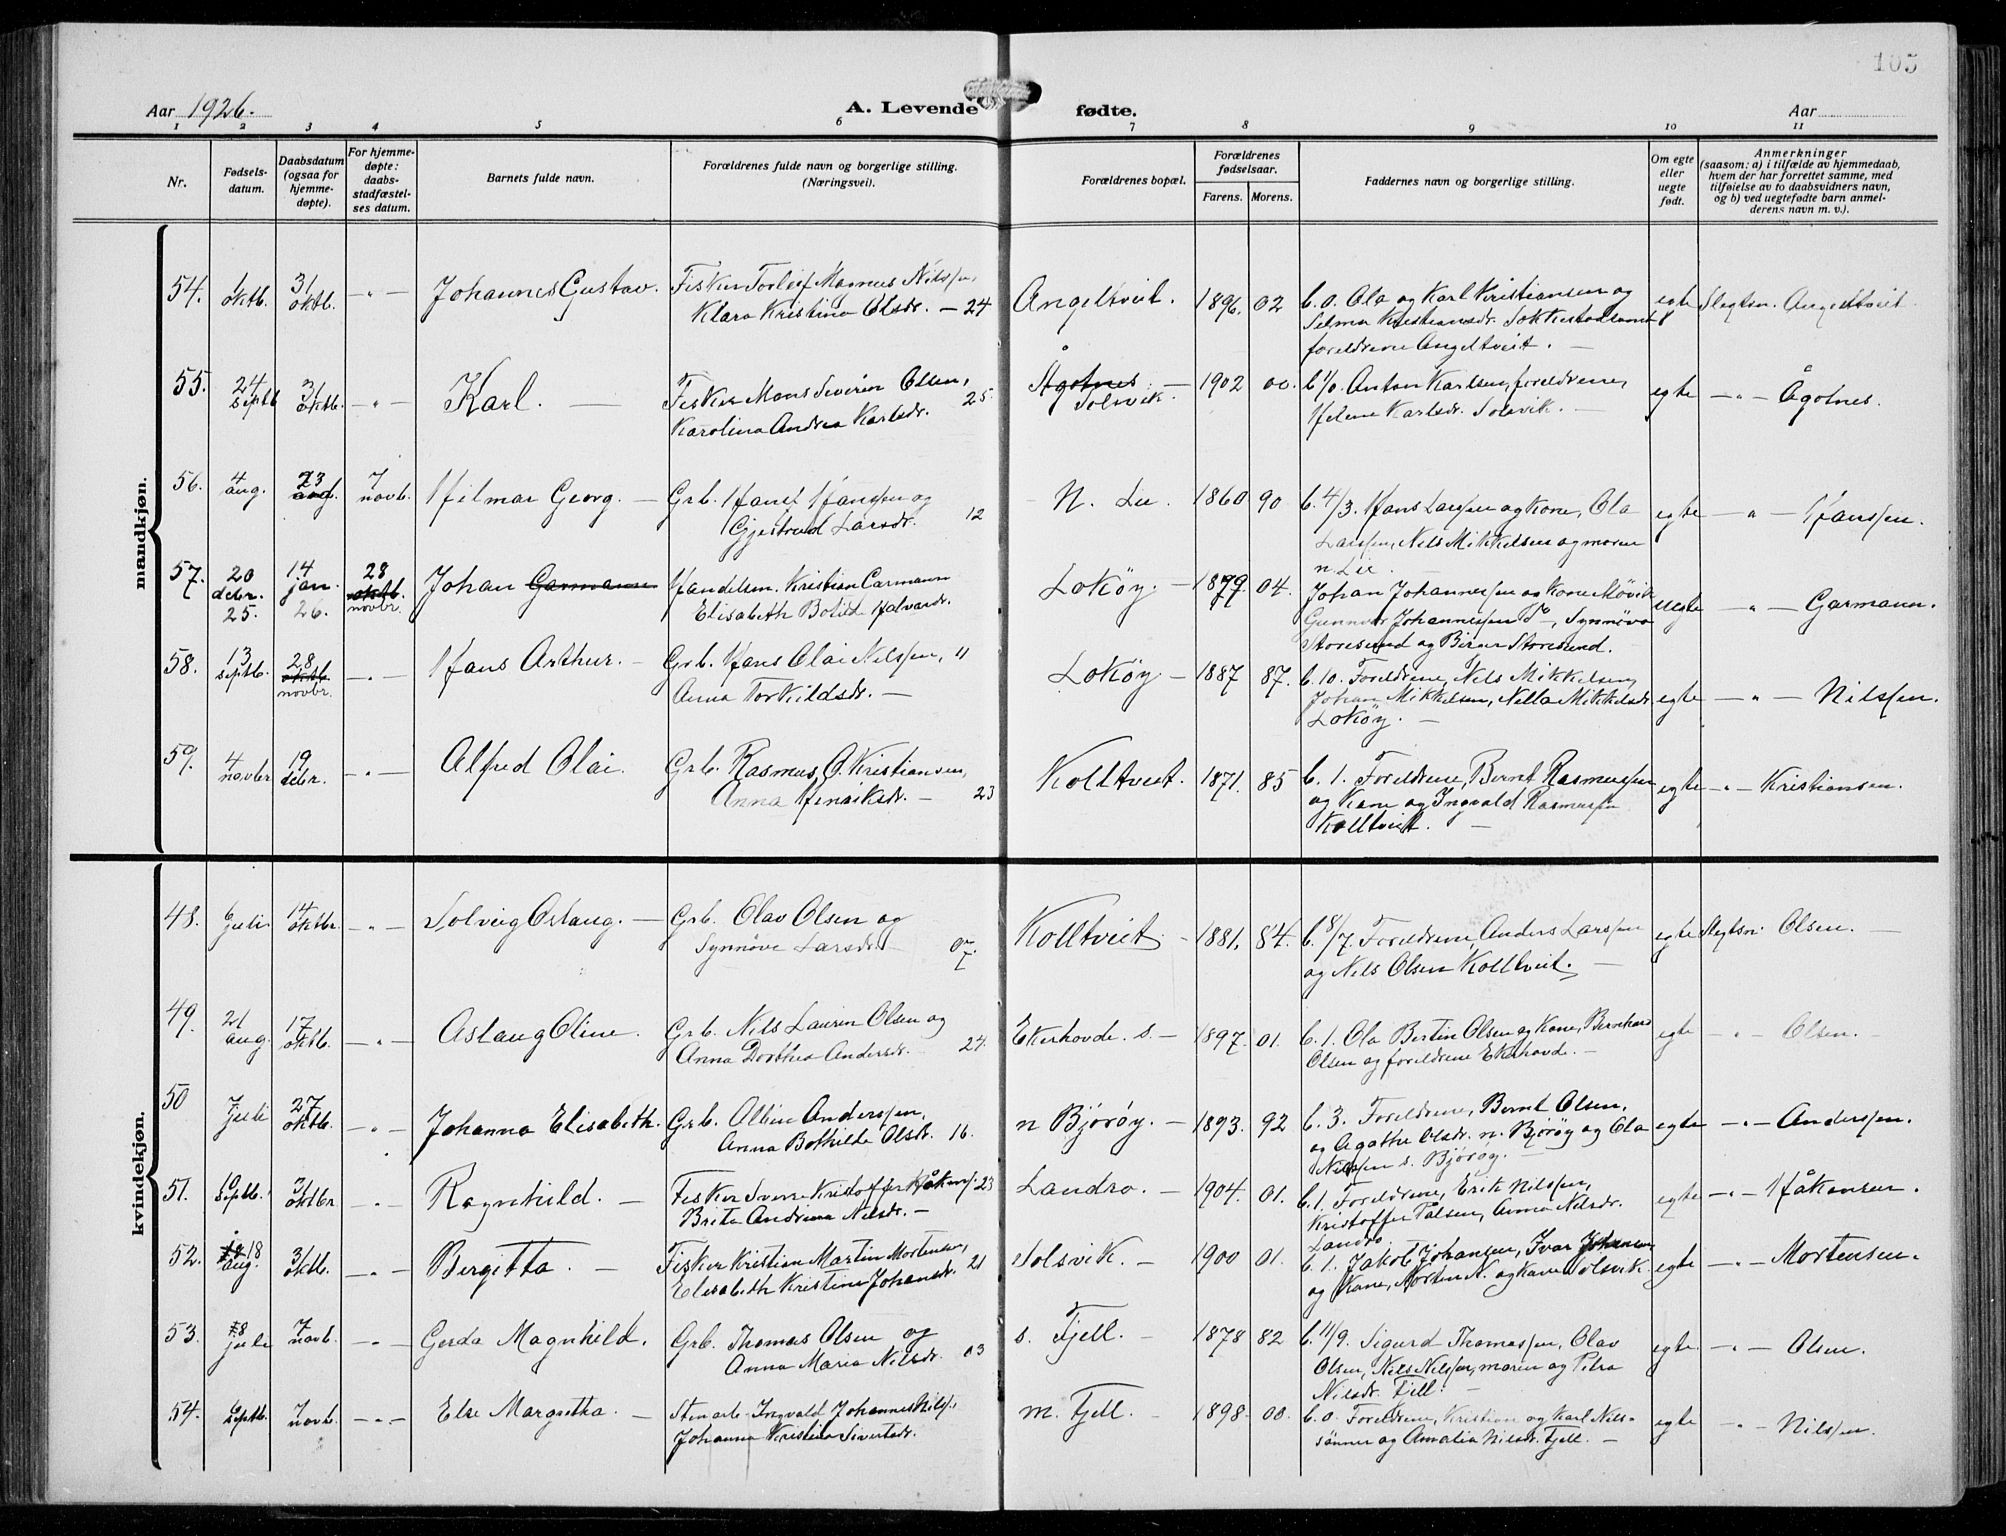 105
Aar 1926.
A. Levende fødte.
Aar
1 2 3 4 5 6 7 8 9 10 11
Nr.
Fødsels-
datum.
Daabsdatum
(ogsaa for
hjemme-
døpte).
For hjemme-
døpte:
daabs-
stadfæstel-
ses datum.
Barnets fulde navn.
Forældrenes fulde navn og borgerlige stilling.
(Næringsvei).
Forældrenes bopæl.
Forældrenes
fødselsaar.
Farens. Morens.
Faddernes navn og borgerlige stilling.
Om egte
eller
uegte
født.
Anmerkninger
(saasom: a) i tilfælde av hjemmedaab,
hvem der har forrettet samme, med
tilføielse av to daabsvidners navn,
og b) ved uegtefødte barn anmel-
derens navn m. v.).
mandkjøn.
54. 1 oktb. 31 oktb. — " — Johannes Gustav. Fisker Torleif Magnus Nilssen,
Klara Kristina Olsdr. — 24
Angeltveit. 1896. 02 b. 0. Ola og Karl Kristiansen og
Selma Kristiansdr. samt
foreldrene Angeltveit. —
egte Slegtsn. Angeltveit
55. 24 septb 31 oktb. — " — Karl. — Fisker Mons Severin Olsen,
Karolina Andrea Karlsdr. 25.
Ågotnes
Solsvik. — 1902 00. b. 1/0. Anton Karlsen, foreldrene,
Helene Karlsdr. Solsvik. —
egte — " — Ågotnes.
56. 4 aug. 23 7 novb. Hilmar Georg. — Grb. Hans Hanssen og
Gjertrud Larsdr. 12
N. Lie. 1860 90 b. 4/3. Hans Larssen og Kone, Ola
Larssen, Nils Mikkelsen og moren
n. Lie. —
egte — " — Hanssen.
57. 20 debr. 25. 14 jan. 26. 28 oktb. novbr. Johan Garmann Handelsm. Kristian Garmann
Elisabeth Botilde Halvardr.
Lokøy. — 1879. 04. Johan Johannessen og Kone Møvik
Gunnvor Johannessen S —, Synnøva
Storesund og Birger Storesund.
uegte — " — Garmann.
58. 13 septb. 28 oktb novbr. — " — Hans Arthur. — Grb. Hans Olai Nilssen, 11
Anna Torkildsdr. —
Lokøy — 1887 87. b. 10. Foreldrene, Nils Mikkelsen,
Johan Mikkelsen, Nella Mikkelsdr.
Lokøy. —
egte — " — Nilssen.
59. 4 novbr 19 debr. — " — Alfred Olai. Grb. Rasmus O. Kristiansen,
Anna Henriksdr. — 23
Kolltveit. 1871. 85 b. 1. Foreldrene, Bernt Rasmussen
og Kone og Ingvald Rasmussen
Kolltveit. —
egte — " — Kristiansen.
kvindekjøn.
48. 6 juli 14 oktbr — " — Solveig Aslaug. — Grb. Olav Olsen og
Synnøve Larsdr. 07.
Kolltveit. — 1881. 84. b. 8/7. Foreldrene, Anders Larssen
og Nils Olsen Kolltveit. —
egte Slegtsn. Olsen. —
49. 21 aug. 17 oktb. — " — Aslaug Oline. Grb. Nils Laurin Olsen og
Anna Dorthea Andersdr. 24.
Ekerhovde. s. — 1897. 01. b. 1. Ola Bertin Olsen og Kone, Bernhard
Olsen og foreldrene Ekerhovde. —
egte — " — Olsen. —
50 7 juli 27 oktb. — " — Johanna Elisabeth. Grb. Albin Anderssen,
Anna Bothilda Olsdr. 16.
n Bjørøy. — 1893. 92 b. 3. Foreldrene, Bernt Olsen,
og Agathe Olsdr. n. Bjørøy og Ola
Nilssen s. Bjørøy. —
egte — " — Anderssen.
51. 10 septb. 31 oktbr — " — Ragnhild. — Fisker Sverre Kristoffer Håkons. 23
Brita Andrina Nilsdr. —
Landro. — 1904. 01. b. 1. Foreldrene, Erik Nilssen,
Kristoffer Pålsen, Anna Nilsdr.
Landro.
egte — " — Håkonsen.
52. 18 aug. 31 oktb. — " — Bergitta. — Fisker Kristian Martin Mortensen,
Elisabeth Kristine Johansdr. 21
Solsvik. — 1900 01. b. 1. Jakob Johansen, Ivar Johansen
og Kone, Morten N. og Kone Solsvik
egte — " — Mortensen.
53. 18 juli 7 novb. — " — Gerda Magnhild. Grb. Thomas Olsen og
Anna Maria Nilsdr. 03
s. Fjell. — 1878 82 b. 11/9. Sigurd Thomassen, Olav
Olsen, Nils Nilssen, moren og Petra
Nilsdr. Fjell. —
egte — " — Olsen.
54. 6 septb. 7 novb. — " — Else Margretha. — Stenarb. Ingvald Johannes Nilss.
Johanna Kristina Sivertsdr.
m. Fjell. — 1898 00. b. 0. Foreldrene, Kristian og Karl Nils-
sønner og Amalia Nilsdr. Fjell. —
egte — " — Nilssen.